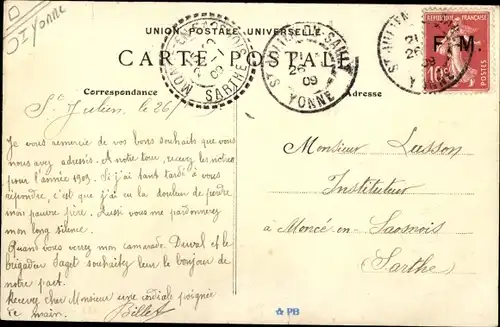 Yonne
UNION POSTALE UNIVERSELLE
CARTE POSTALE
Correspondance
Adresse
SARTHE
ST JULIEN-DU-SAULT
26
09
YONNE
F. M.
10c
St Julien, le 26/
Je vous remercie de vos bons souhaits que vous
nous avez adressés. A notre tour, recevez les nôtres
pour l'année 1909. Si j'ai tant tardé à vous
répondre, c'est que j'ai eu la douleur de perdre
mon pauvre père. Aussi vous me pardonnerez
mon long silence.
Quand vous verrez mon camarade Duval et le
brigadier Saget souhaitez leur le bonjour de
notre part.
Recevez cher Monsieur une cordiale poignée
de main. Billet
Monsieur Lusson
Instituteur
à Moncé-en-Saosnois
(Sarthe)
PB